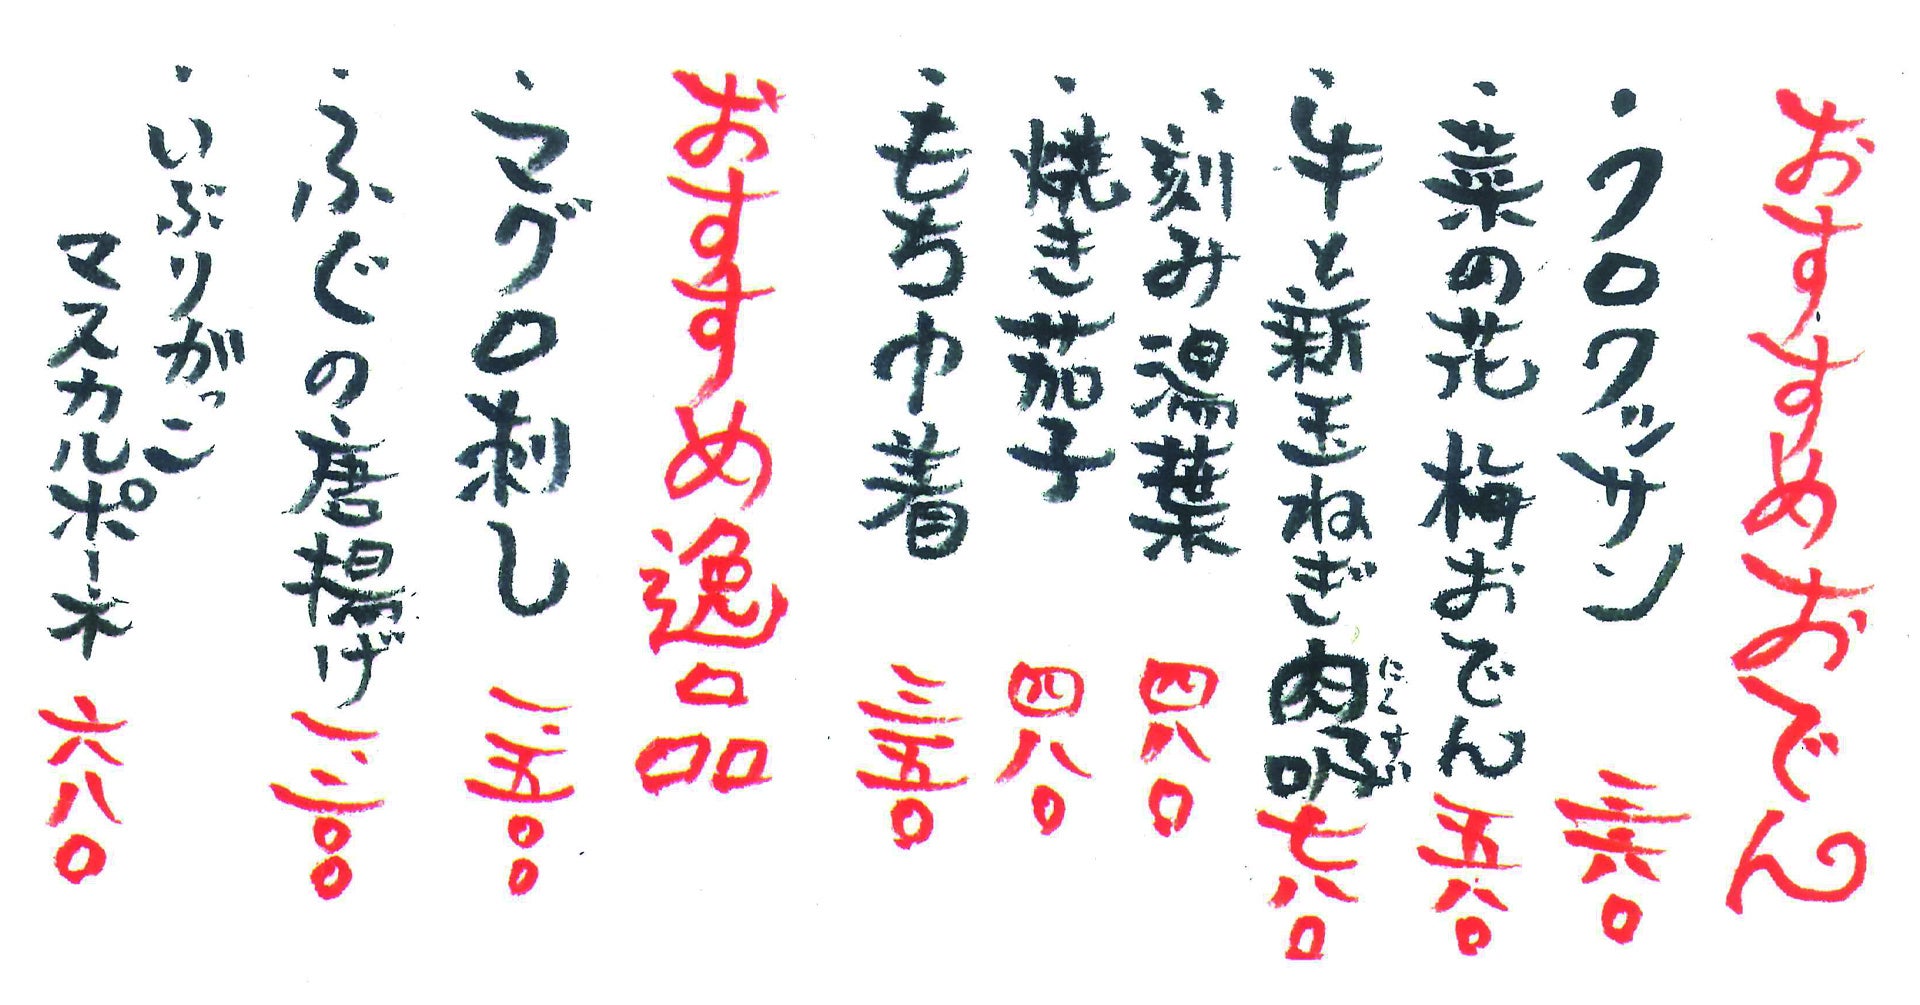 おすすめおでん
・クロワッサン 三六〇
・菜の花 梅おでん 五八〇
・牛と新玉ねぎ肉吸 七八〇
にくすい
・刻み湯葉 四八〇
・焼き茄子 四八〇
・もち巾着 三五〇
おすすめ逸品
・マグロ刺し 一、五〇〇
・ふぐの唐揚げ 一、二〇〇
・いぶりがっこ
マスカルポーネ 六八〇